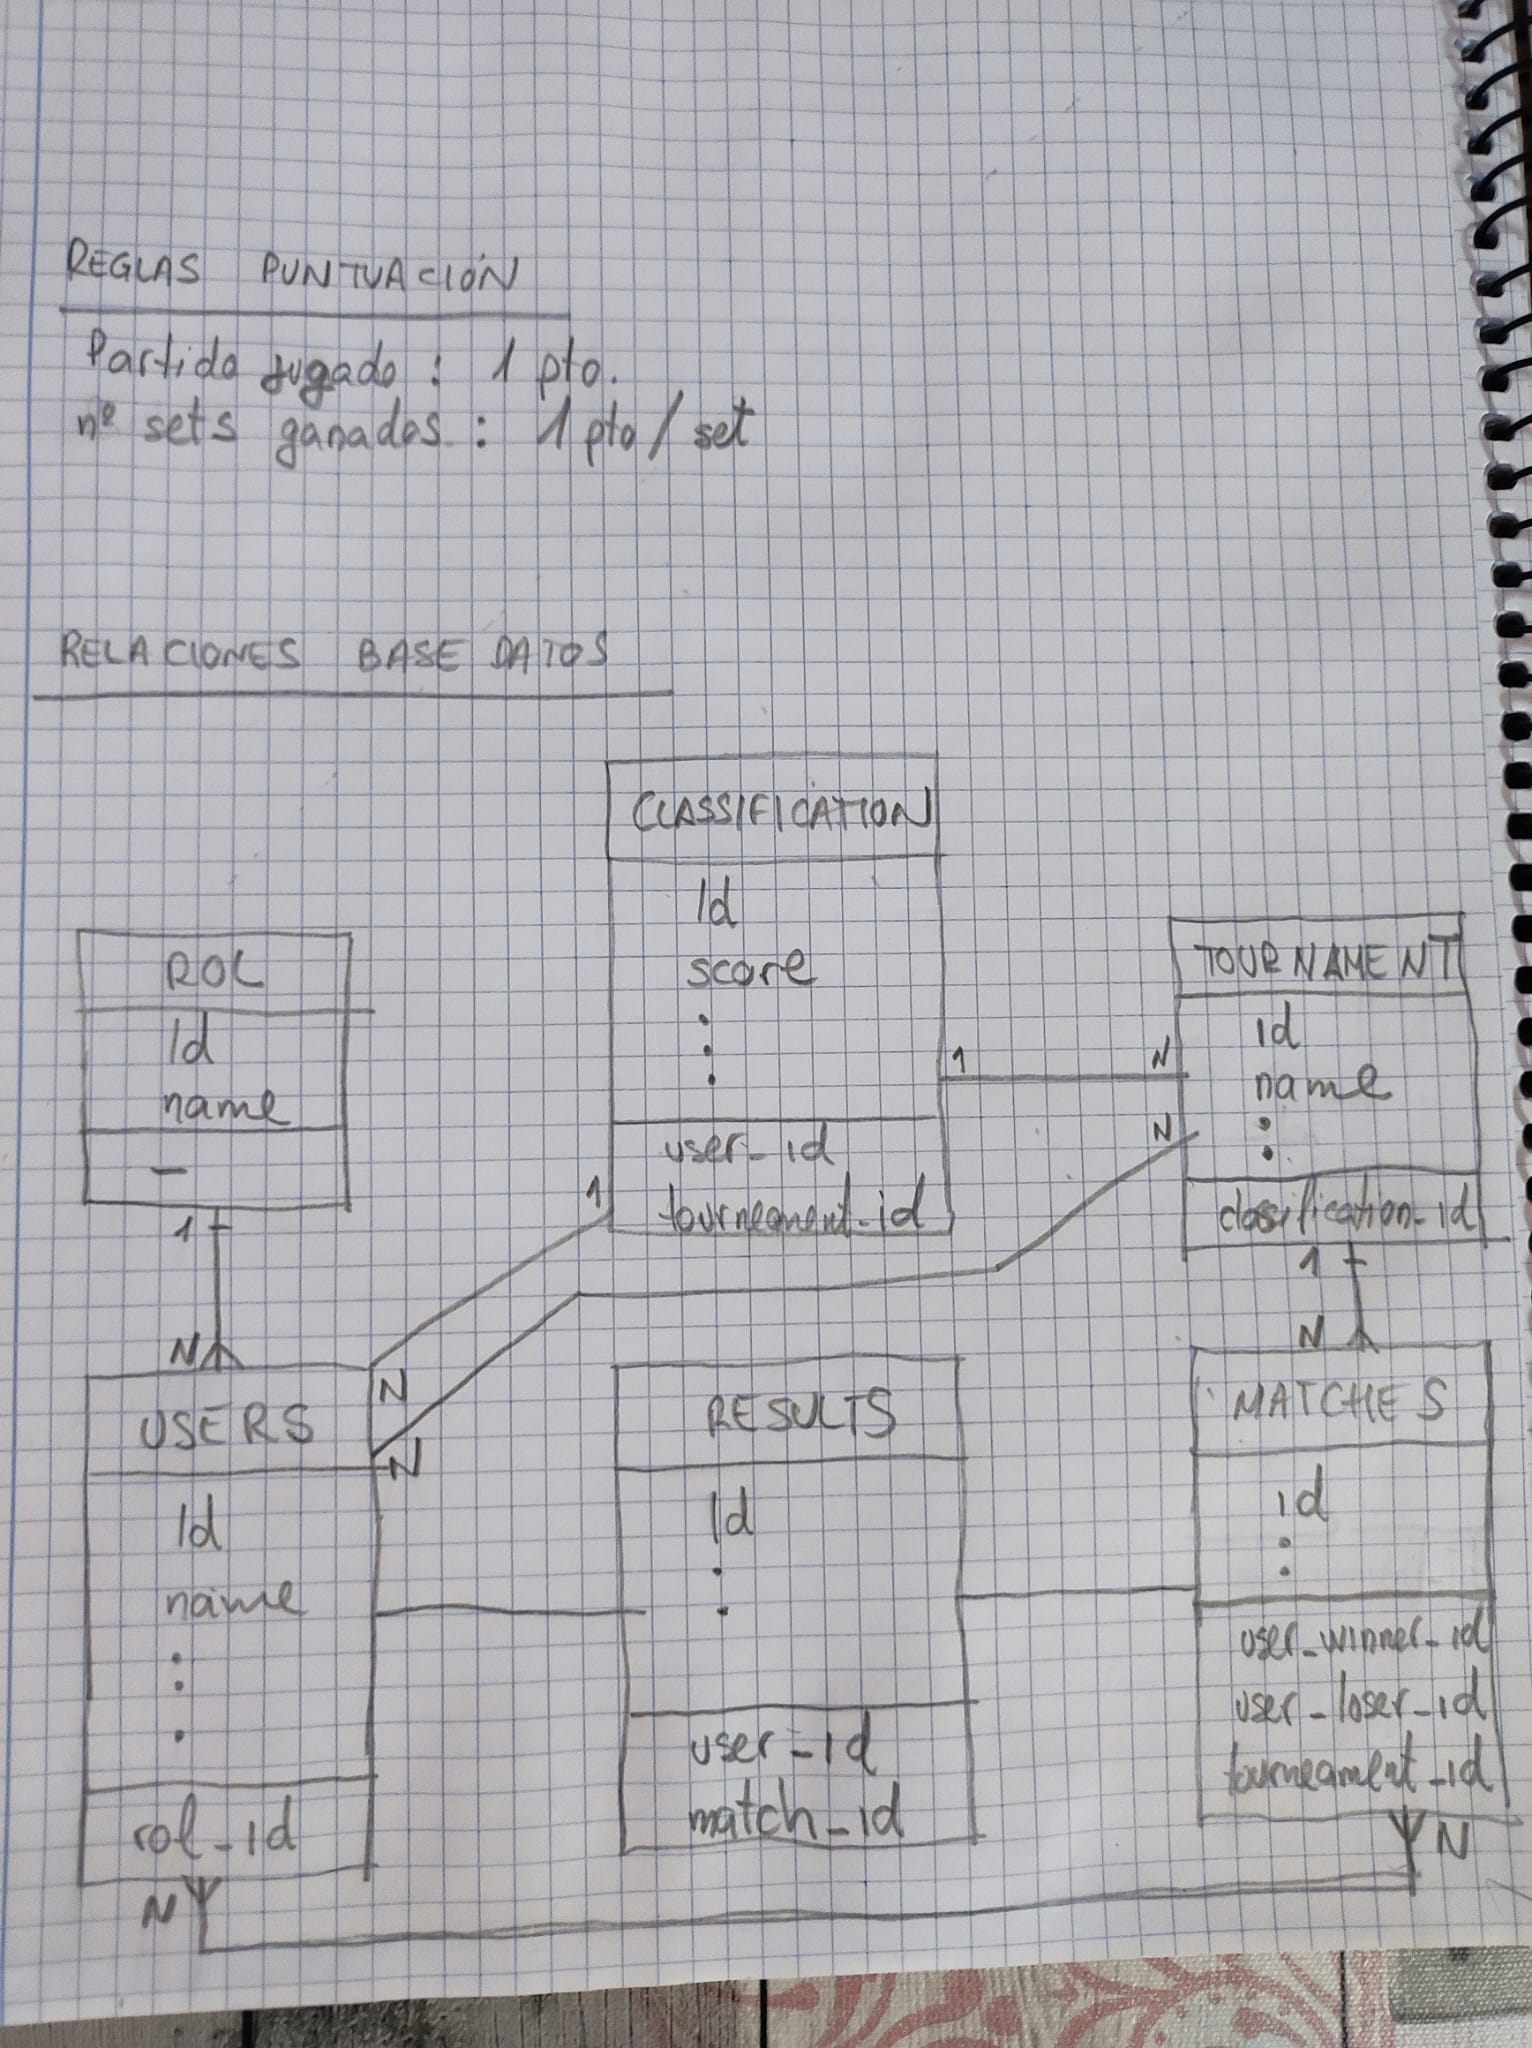 REGLAS PUNTUACIÓN
Partido jugado : 1 pto.
nº sets ganados : 1 pto/set
RELACIONES BASE DATOS
CLASSIFICATION
Id
score
user_id
tourneament_id
ROL
Id
name
—
TOURNAMENT
id
name
clasification_id
1 N
N
1
1
N
1
N
N
N
USERS
Id
name
rol_id
RESULTS
Id
user_id
match_id
MATCHES
id
user_winner_id
user_loser_id
tourneament_id
N
N